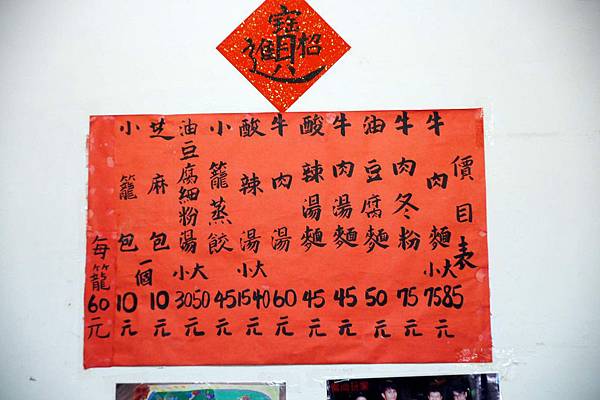 招財進寶
價目表
牛肉麵 小大 75 85元
牛肉冬粉 75元
油豆腐麵 50元
牛肉湯麵 45元
酸辣湯麵 45元
牛肉湯 60元
酸辣湯 小大 15 40元
小籠蒸餃 45元
油豆腐細粉湯 小大 30 50元
芝麻包 一個 10元
小籠包 10元
每籠60元